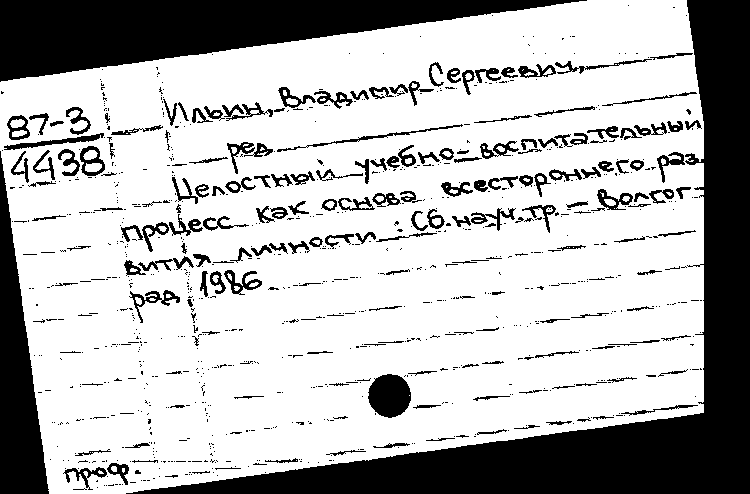 87-3
4438
Ильин, Владимир Сергеевич,
ред
Целостный учебно-воспитательный
процесс как основа всестороннего раз
вития личности : Сб. науч. тр. - Волгог-
рад, 1986.
проф.